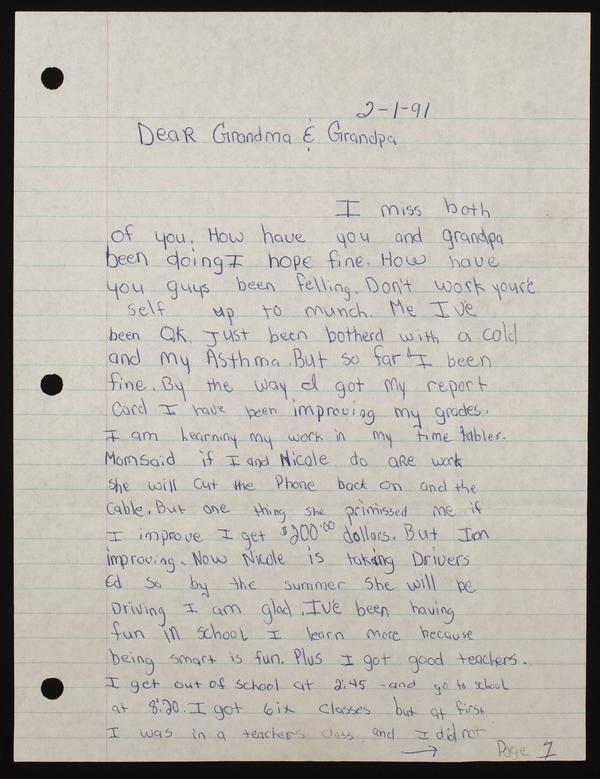 2-1-91
Dear Grandma & Grandpa
I miss both
of you. How have you and grandpa
been doing I hope fine. How have
you guys been felling. Don't work youre
self up to munch. Me I've
been O.K. Just been botherd with a cold
and my Asthma. But so far I been
fine. By the way I got my report
Card I have been improving my grades.
I am learning my work in my time tables.
Mom said if I and Nicole do are work
she will cut the Phone back on and the
Cable. But one thing she primissed me if
I improve I get $200.00 dollars. But Im
improving. Now Nicole is taking Drivers
Ed so by the summer she will be
Driving I am glad. I've been having
fun in school I learn more because
being smart is fun. Plus I got good teachers.
I get out of school at 2:45 - and go to school
at 8:20. I got 6ix classes but at first
I was in a teachers class and I did not
→ Page 1